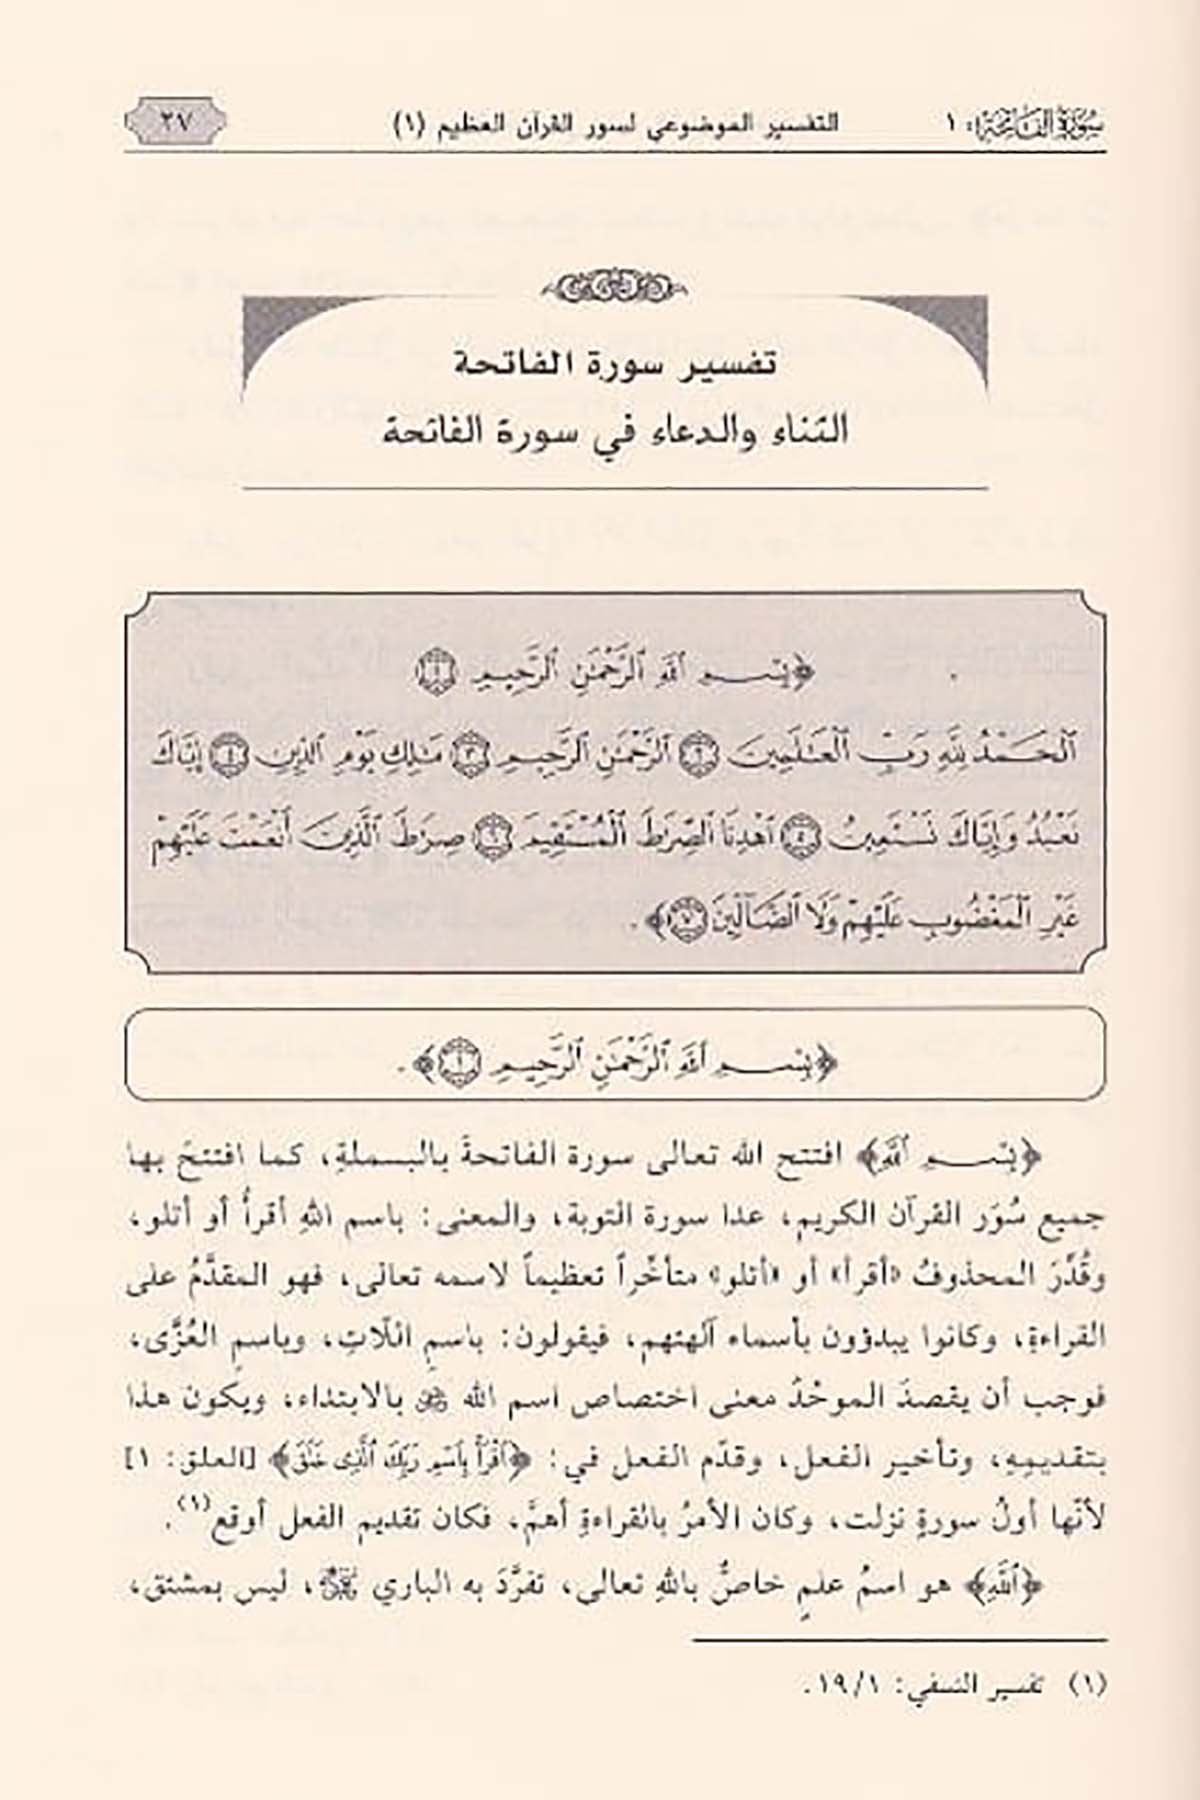 سورة الفاتحة: ١
التفسير الموضوعي لسور القرآن العظيم (١)
٢٧
تفسير سورة الفاتحة
الثناء والدعاء في سورة الفاتحة
﴿بِسْمِ ٱللَّهِ ٱلرَّحْمَٰنِ ٱلرَّحِيمِ ١
ٱلْحَمْدُ لِلَّهِ رَبِّ ٱلْعَٰلَمِينَ ٢ ٱلرَّحْمَٰنِ ٱلرَّحِيمِ ٣ مَٰلِكِ يَوْمِ ٱلدِّينِ ٤ إِيَّاكَ
نَعْبُدُ وَإِيَّاكَ نَسْتَعِينُ ٥ ٱهْدِنَا ٱلصِّرَٰطَ ٱلْمُسْتَقِيمَ ٦ صِرَٰطَ ٱلَّذِينَ أَنْعَمْتَ عَلَيْهِمْ
غَيْرِ ٱلْمَغْضُوبِ عَلَيْهِمْ وَلَا ٱلضَّآلِّينَ ٧﴾.
﴿بِسْمِ ٱللَّهِ ٱلرَّحْمَٰنِ ٱلرَّحِيمِ ١﴾.
﴿بِسْمِ ٱللَّهِ﴾ افتتح الله تعالى سورة الفاتحةَ بالبسملةِ، كما افتتحَ بها
جميع سُوَر القرآن الكريم، عدا سورة التوبة، والمعنى: باسم اللهِ أقرأُ أو أتلو،
وقُدِّرَ المحذوفُ «أقرأ» أو «أتلو» متأخِّراً تعظيماً لاسمه تعالى، فهو المقدَّمُ على
القراءةِ، وكانوا يبدؤون بأسماء آلهتهم، فيقولون: باسمِ اللّاتِ، وباسمِ العُزَّى،
فوجب أن يقصدَ الموحِّدُ معنى اختصاص اسم الله ﷻ بالابتداء، ويكون هذا
بتقديمِهِ، وتأخير الفعل، وقدّم الفعل في: ﴿ٱقْرَأْ بِٱسْمِ رَبِّكَ ٱلَّذِى خَلَقَ﴾ [العلق: ١]
لأنّها أولُ سورةٍ نزلت، وكان الأمرُ بالقراءةِ أهمَّ، فكان تقديم الفعل أوقع(١).
﴿ٱللَّهِ﴾ هو اسمُ علمٍ خاصٌّ باللهِ تعالى، تفرَّدَ به الباري ، ليس بمشتق،
(١) تفسير النسفي: ١/١٩.